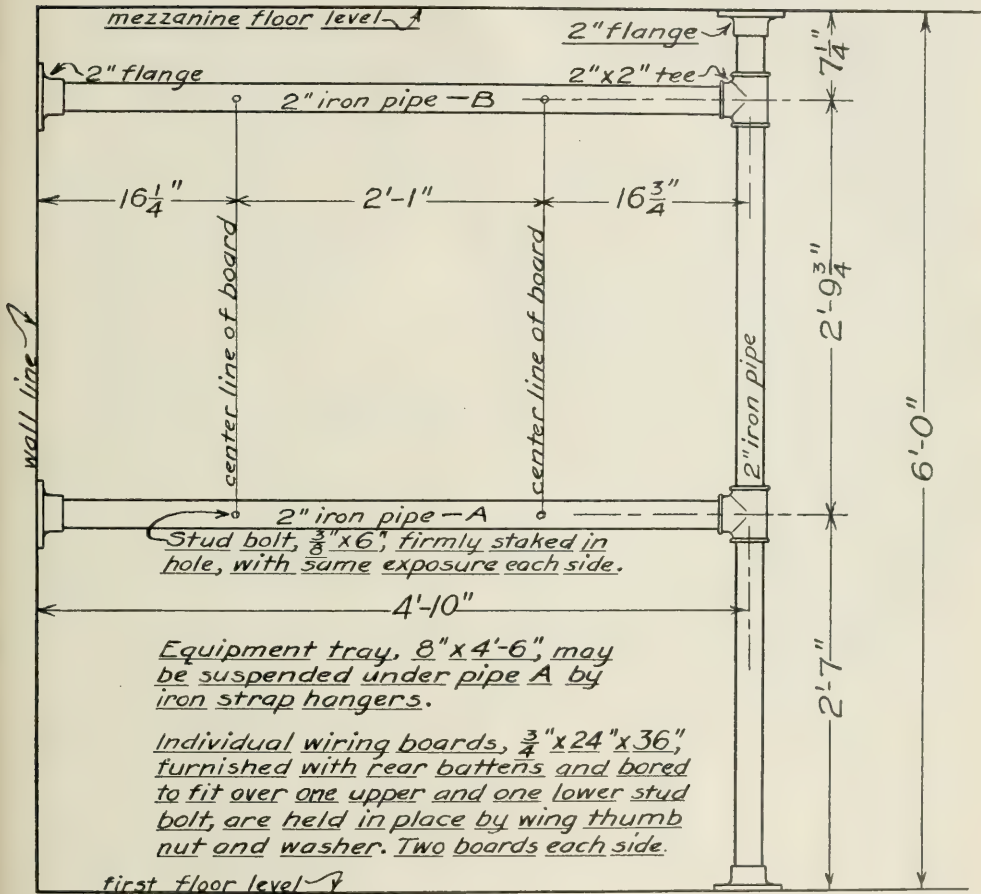 mezzanine floor level
2" flange
7 1/4"
2" flange
2"x2" tee
2" iron pipe — B
16 1/4"
2'-1"
16 3/4"
wall line
center line of board
center line of board
2" iron pipe
2'-9 3/4"
6'-0"
2" iron pipe — A
Stud bolt, 3/8"x6", firmly staked in
hole, with same exposure each side.
4'-10"
2'-7"
Equipment tray, 8"x4'-6", may
be suspended under pipe A by
iron strap hangers.
Individual wiring boards, 3/4"x24"x36",
furnished with rear battens and bored
to fit over one upper and one lower stud
bolt, are held in place by wing thumb
nut and washer. Two boards each side.
first floor level